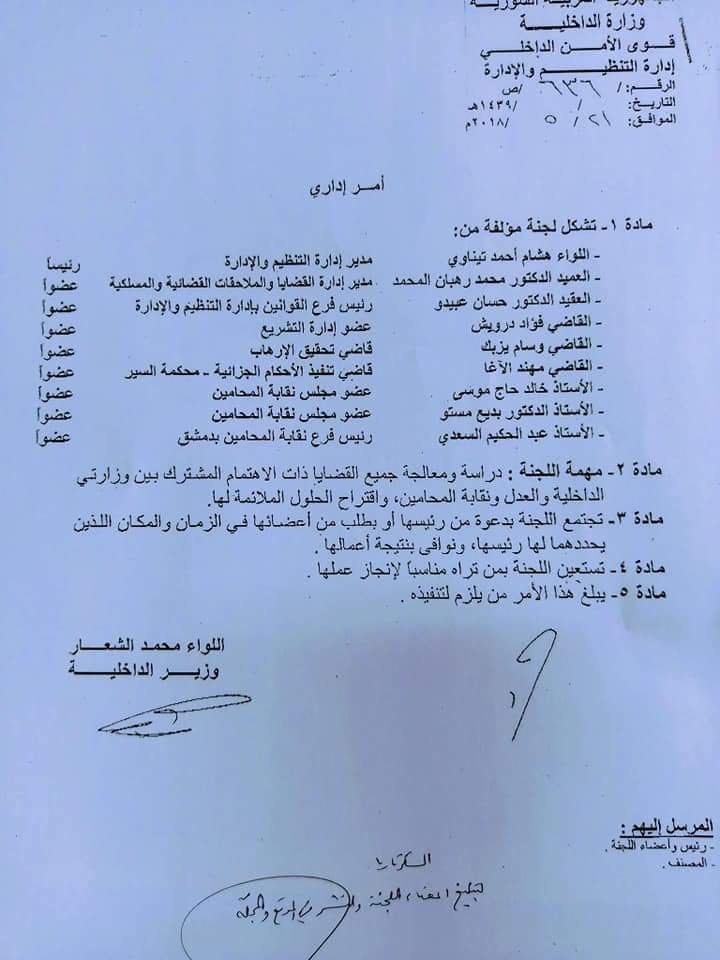 الجمهورية العربية السورية
وزارة الداخلية
قوى الأمن الداخلي
إدارة التنظيم والإدارة
الرقم: / ٦٣٦ /ص
التاريخ: / /١٤٣٩هـ
الموافق: ٢١/ ٥ /٢٠١٨م
أمر إداري
مادة ١- تشكل لجنة مؤلفة من:
- اللواء هشام أحمد تيناوي مدير إدارة التنظيم والإدارة رئيساً
- العميد الدكتور محمد رهبان المحمد مدير إدارة القضايا والملاحقات القضائية والمسلكية عضواً
- العقيد الدكتور حسان عبيدو رئيس فرع القوانين بإدارة التنظيم والإدارة عضواً
- القاضي فؤاد درويش عضو إدارة التشريع عضواً
- القاضي وسام يزبك قاضي تحقيق الإرهاب عضواً
- القاضي مهند الآغا قاضي تنفيذ الأحكام الجزائية - محكمة السير عضواً
- الأستاذ خالد حاج موسى عضو مجلس نقابة المحامين عضواً
- الأستاذ الدكتور بديع مستو عضو مجلس نقابة المحامين عضواً
- الأستاذ عبد الحكيم السعدي رئيس فرع نقابة المحامين بدمشق عضواً
مادة ٢- مهمة اللجنة : دراسة ومعالجة جميع القضايا ذات الاهتمام المشترك بين وزارتي
الداخلية والعدل ونقابة المحامين، واقتراح الحلول الملائمة لها.
مادة ٣- تجتمع اللجنة بدعوة من رئيسها أو بطلب من أعضائها في الزمان والمكان اللذين
يحددهما لها رئيسها، ونوافى بنتيجة أعمالها .
مادة ٤- تستعين اللجنة بمن تراه مناسباً لإنجاز عملها .
مادة ٥- يبلغ هذا الأمر من يلزم لتنفيذه .
اللواء محمد الشعار
وزير الداخلية
المرسل إليهم :
- رئيس وأعضاء اللجنة .
- المصنف .
السكرتاريا
لتبليغ أعضاء اللجنة والنشر في الموقع والمجلة